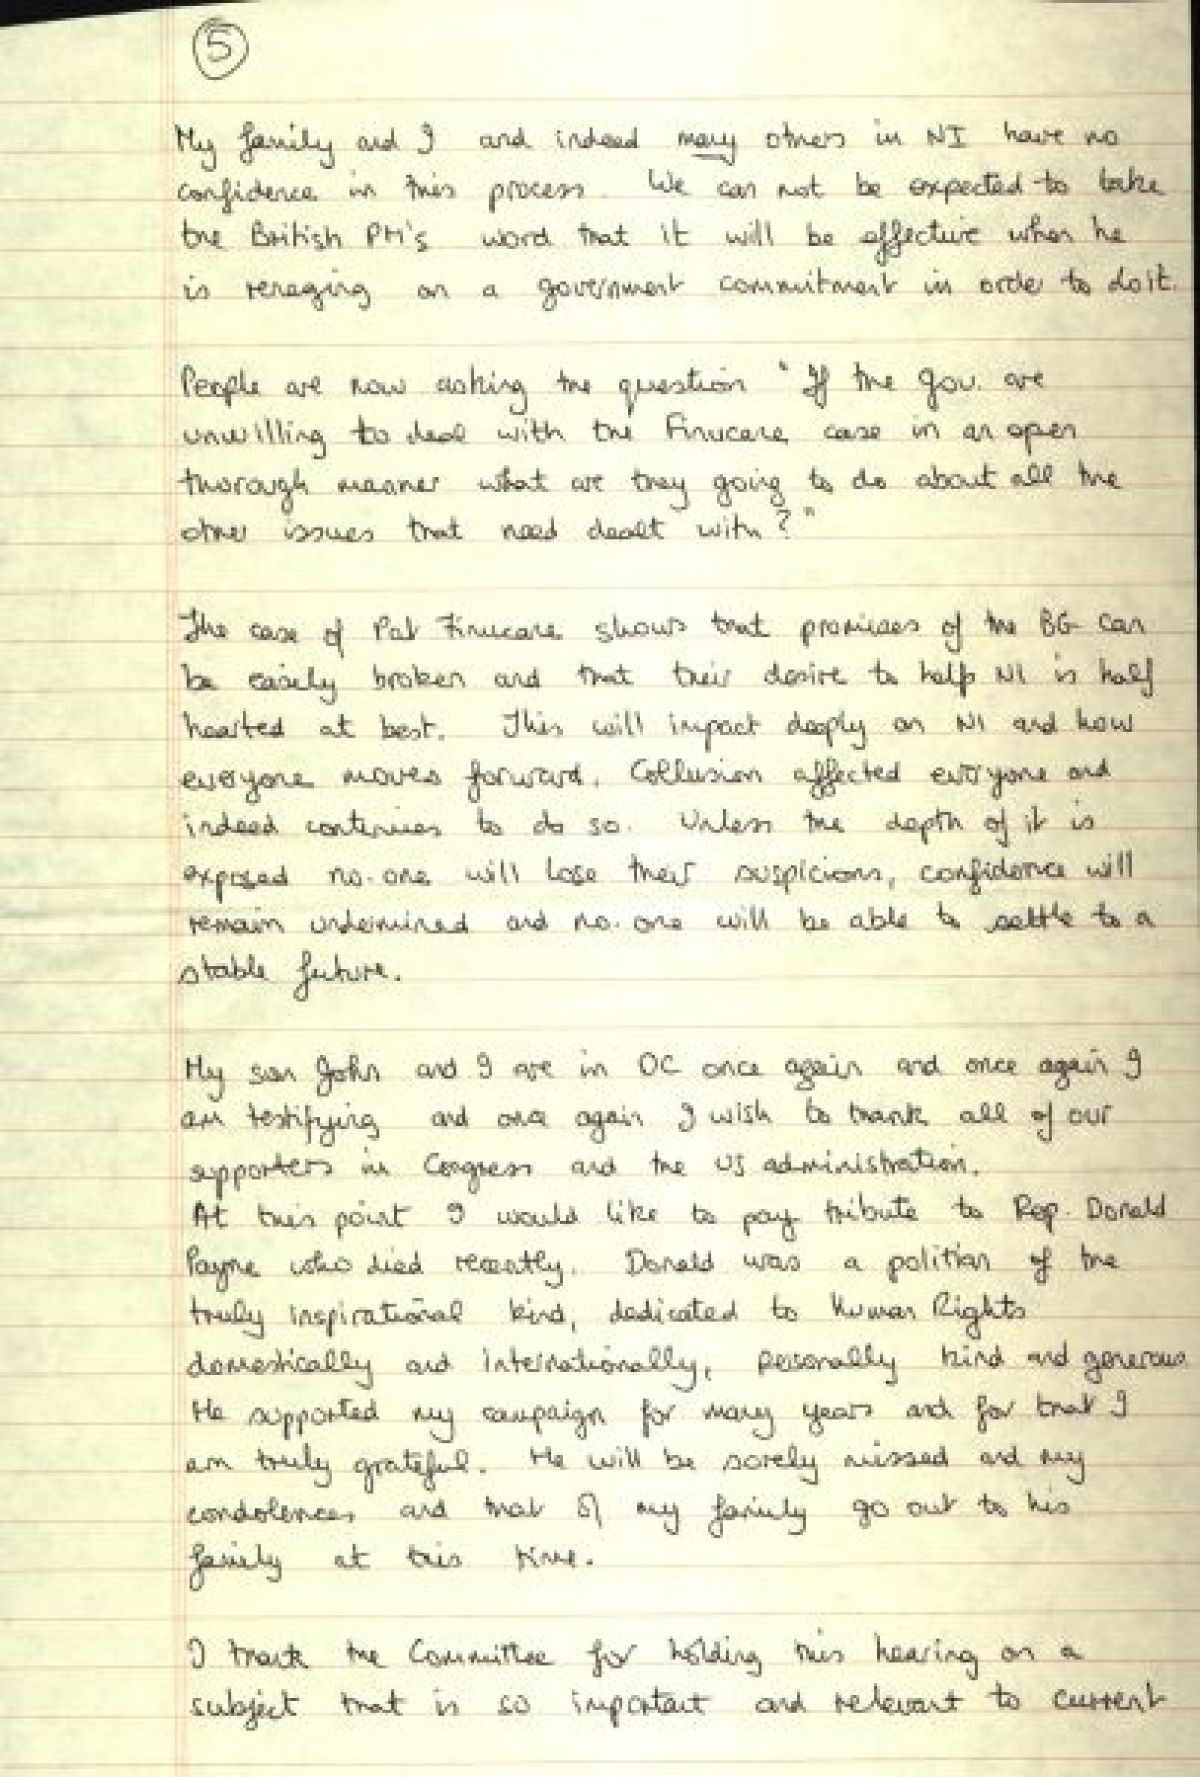 5
My family and I and indeed many others in NI have no
confidence in this process. We can not be expected to take
the British PM's word that it will be effective when he
is reneging on a government commitment in order to do it.
People are now asking the question "If the Gov. are
unwilling to deal with the Finucane case in an open
thorough manner what are they going to do about all the
other issues that need dealt with?"
The case of Pat Finucane shows that promises of the BG can
be easily broken and that their desire to help NI is half
hearted at best. This will impact deeply on NI and how
everyone moves forward. Collusion affected everyone and
indeed continues to do so. Unless the depth of it is
exposed no-one will lose their suspicions, confidence will
remain undermined and no-one will be able to settle to a
stable future.
My son John and I are in DC once again and once again I
am testifying and once again I wish to thank all of our
supporters in Congress and the US administration.
At this point I would like to pay tribute to Rep. Donald
Payne who died recently. Donald was a politian of the
truly inspirational kind, dedicated to Human Rights
domestically and internationally, personally kind and generous.
He supported my campaign for many years and for that I
am truly grateful. He will be sorely missed and my
condolences and that of my family go out to his
family at this time.
I thank the Committee for holding this hearing on a
subject that is so important and relevant to current